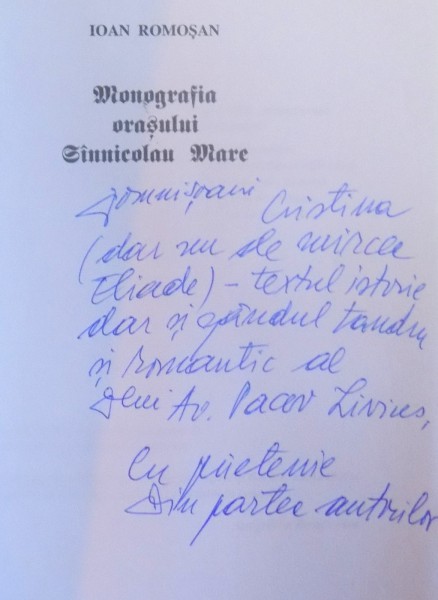 IOAN ROMOȘAN
Monografia
orașului
Sînnicolau Mare
Domnișoarei Cristina
(dar nu de Mircea
Eliade) – textul istoric
dar și gândul tandru
și romantic al
Dlui Av. Pacov Livius,
Cu prietenie
Din partea autorilor